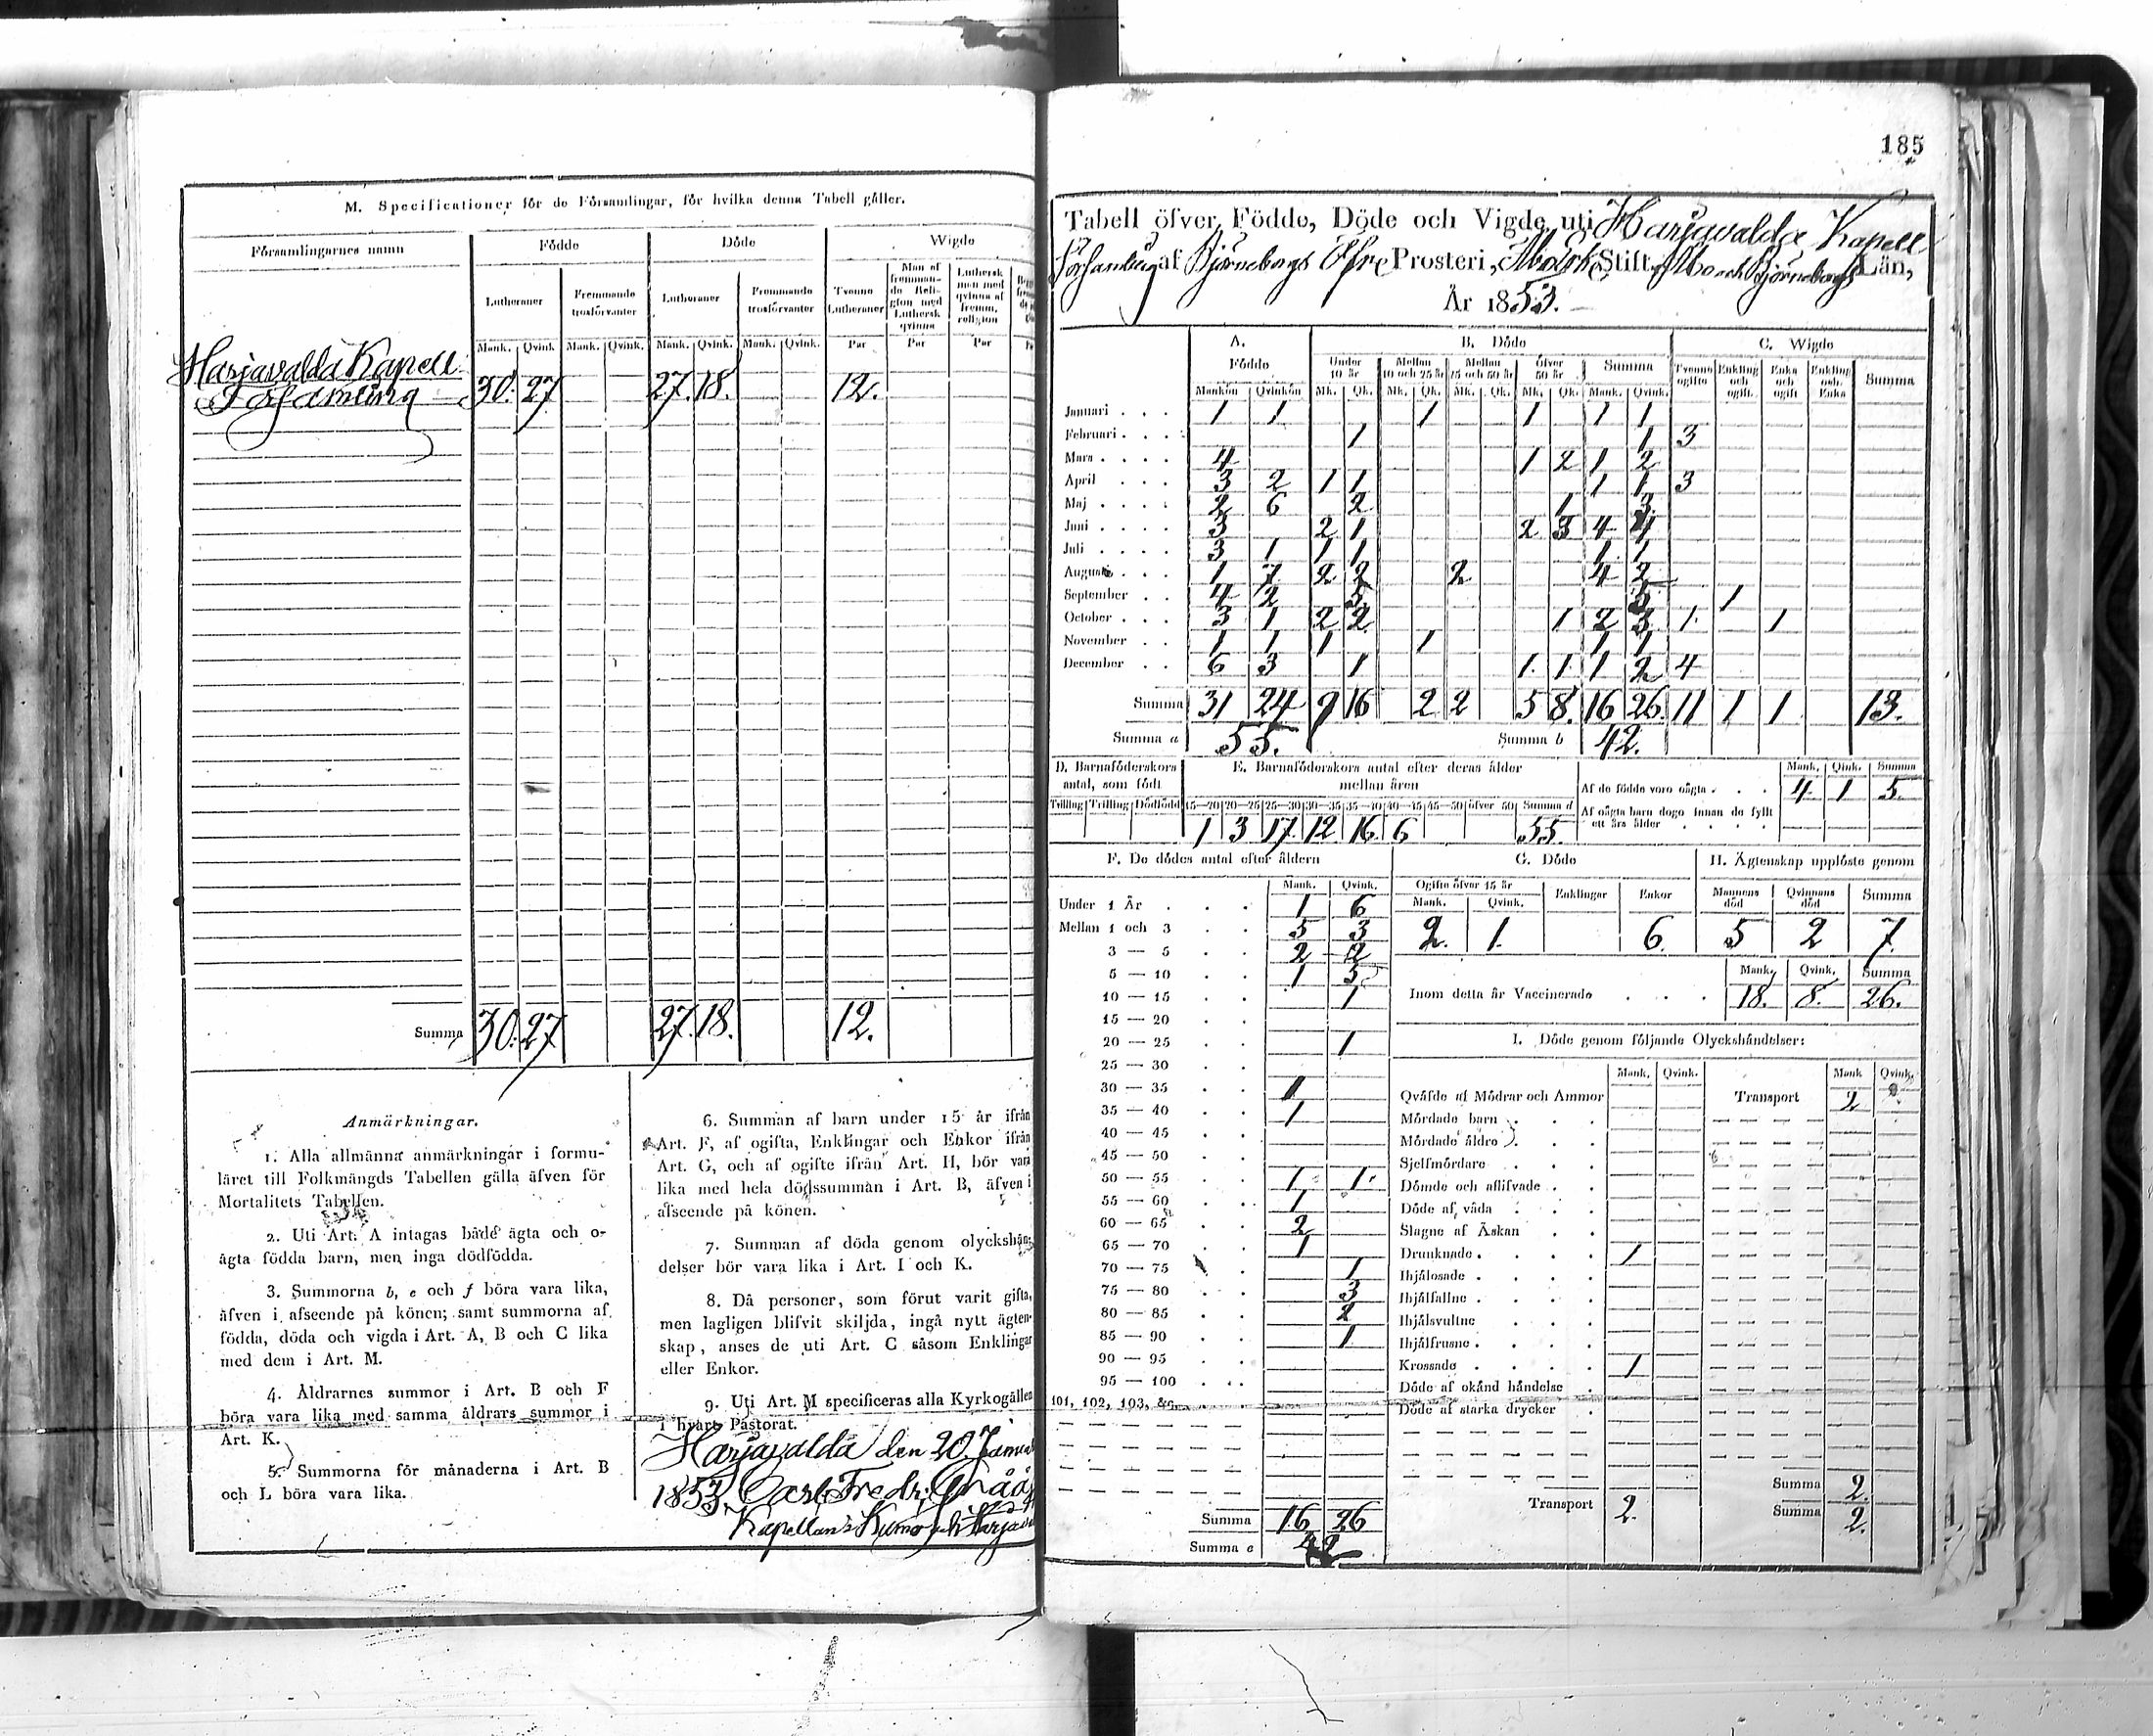 M. Specificationer för de Församlingar, för hvilka denna Tabell gäller.
Församlingarnes namn Födde Döde Wigde
Lutheraner Fremmande trosförvanter Lutheraner Fremmande trosförvanter Tvenne Lutheraner Man af fremmande Religion med Luthersk qvinna Luthersk man med qvinna af fremm. religion
Mank. Qvink. Mank. Qvink. Mank. Qvink. Mank. Qvink. Par Par Par
Harjavalda Kapell
Församling 30. 27 27. 18. 12.
Summa 30. 27 27. 18. 12.
Anmärkningar.
1. Alla allmänna anmärkningar i formu-
läret till Folkmängds Tabellen gälla äfven för
Mortalitets Tabellen.
2. Uti Art. A intagas både ägta och o-
ägta födda barn, men inga dödfödda.
3. Summorna b, e och f böra vara lika,
äfven i afseende på könen; samt summorna af
födda, döda och vigda i Art. A, B och C lika
med dem i Art. M.
4. Åldrarnes summor i Art. B och F
böra vara lika med samma åldrars summor i
Art. K.
5. Summorna för månaderna i Art. B
och L böra vara lika.
6. Summan af barn under 15 år ifrån
Art. F, af ogifta, Enklingar och Enkor ifrån
Art. G, och af ogifte ifrån Art. H, bör vara
lika med hela dödssumman i Art. B, äfven i
afseende på könen.
7. Summan af döda genom olyckshän-
delser bör vara lika i Art. I och K.
8. Då personer, som förut varit gifta,
men lagligen blifvit skiljda, ingå nytt ägten-
skap, anses de uti Art. C såsom Enklingar
eller Enkor.
9. Uti Art. M specificeras alla Kyrkogällen
i hvart Pastorat.
Harjavalda den 20 Januari
1853. Carl Fredr.
Kapellan i Kumo och
185
Tabell öfver Födde, Döde och Vigde uti Harjavalda Kapell
Församling af Björneborgs Öfre Prosteri, Åbo Stift, Åbo och Björneborgs Län,
År 1853.
A. Födde B. Döde C. Wigde
Under 10 år Mellan 10 och 25 år Mellan 25 och 50 år öfver 50 år Summa Tvenne ogifte Enkling och ogift. Enka och ogift Enkling och Enka Summa
Mankön Qvinkön Mk. Qk. Mk. Qk. Mk. Qk. Mk. Qk. Mank. Qvink.
Januari 1 1 1 1 1 1
Februari 1 1 3
Mars 4 1 2 1 2
April 3 2 1 1 1 1 3
Maj 2 6 2 1 3
Juni 3 2 1 2 3 4 4
Juli 3 1 1 1 1 1
Augusti 1 7 2 2 2 4 2
September 4 2 5 5 1
October 3 1 2 2 1 2 3 1 1
November 1 1 1 1 1 1
December 6 3 1 1 1 1 2 4
Summa 31 24 9 16 2 2 5 8. 16 26. 11 1 1 13.
Summa a 55. Summa b 42.
D. Barnaföderskors antal, som födt
Tvilling Trilling Dödfödd
E. Barnaföderskors antal efter deras ålder mellan åren
15—20 20—25 25—30 30—35 35—40 40—45 45—50 öfver 50 Summa d
1 3 17. 12. 16. 6 55.
Mank. Qink. Summa
Af de födde voro oägta 4 1 5.
Af oägta barn dogo innan de fyllt
ett års ålder
F. De dödes antal efter åldern
Mank. Qvink.
Under 1 År 1 6
Mellan 1 och 3 5 3
3 — 5 2 2
5 — 10 1 5
10 — 15 1
15 — 20
20 — 25 1
25 — 30
30 — 35 1
35 — 40 1
40 — 45
45 — 50
50 — 55 1 1
55 — 60 1
60 — 65 2
65 — 70 1
70 — 75 1
75 — 80 3
80 — 85 2
85 — 90 1
90 — 95
95 — 100
101, 102, 103, &c.
Summa 16 26
Summa e 42
G. Döde
Ogifte öfver 15 år Enklingar Enkor
Mank. Qvink.
2. 1. 6.
H. Ägtenskap upplöste genom
Mannens död Qvinnans död Summa
5 2 7.
Mank. Qvink. Summa
Inom detta år Vaccinerade 18. 8. 26.
I. Döde genom följande Olyckshändelser:
Mank. Qvink. Mank Qvink.
Qväfde af Mödrar och Ammor Transport 2
Mördade barn
Mördade äldre
Sjelfmördare
Dömde och aflifvade
Döde af våda
Slagne af Åskan
Drunknade 1
Ihjälosade
Ihjälfallne
Ihjälsvultne
Ihjälfrusne
Krossade 1
Döde af okänd händelse
Döde af starka drycker
Summa 2.
Transport 2. Summa 2.